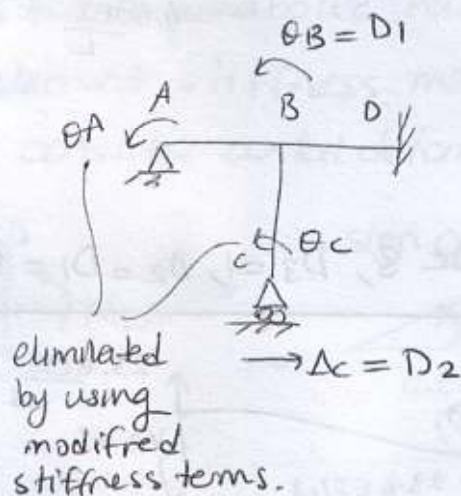 θB = D1
A
B
D
θA
C
θC
→ Δc = D2
eliminated
by using
modifred
stiffness terms.